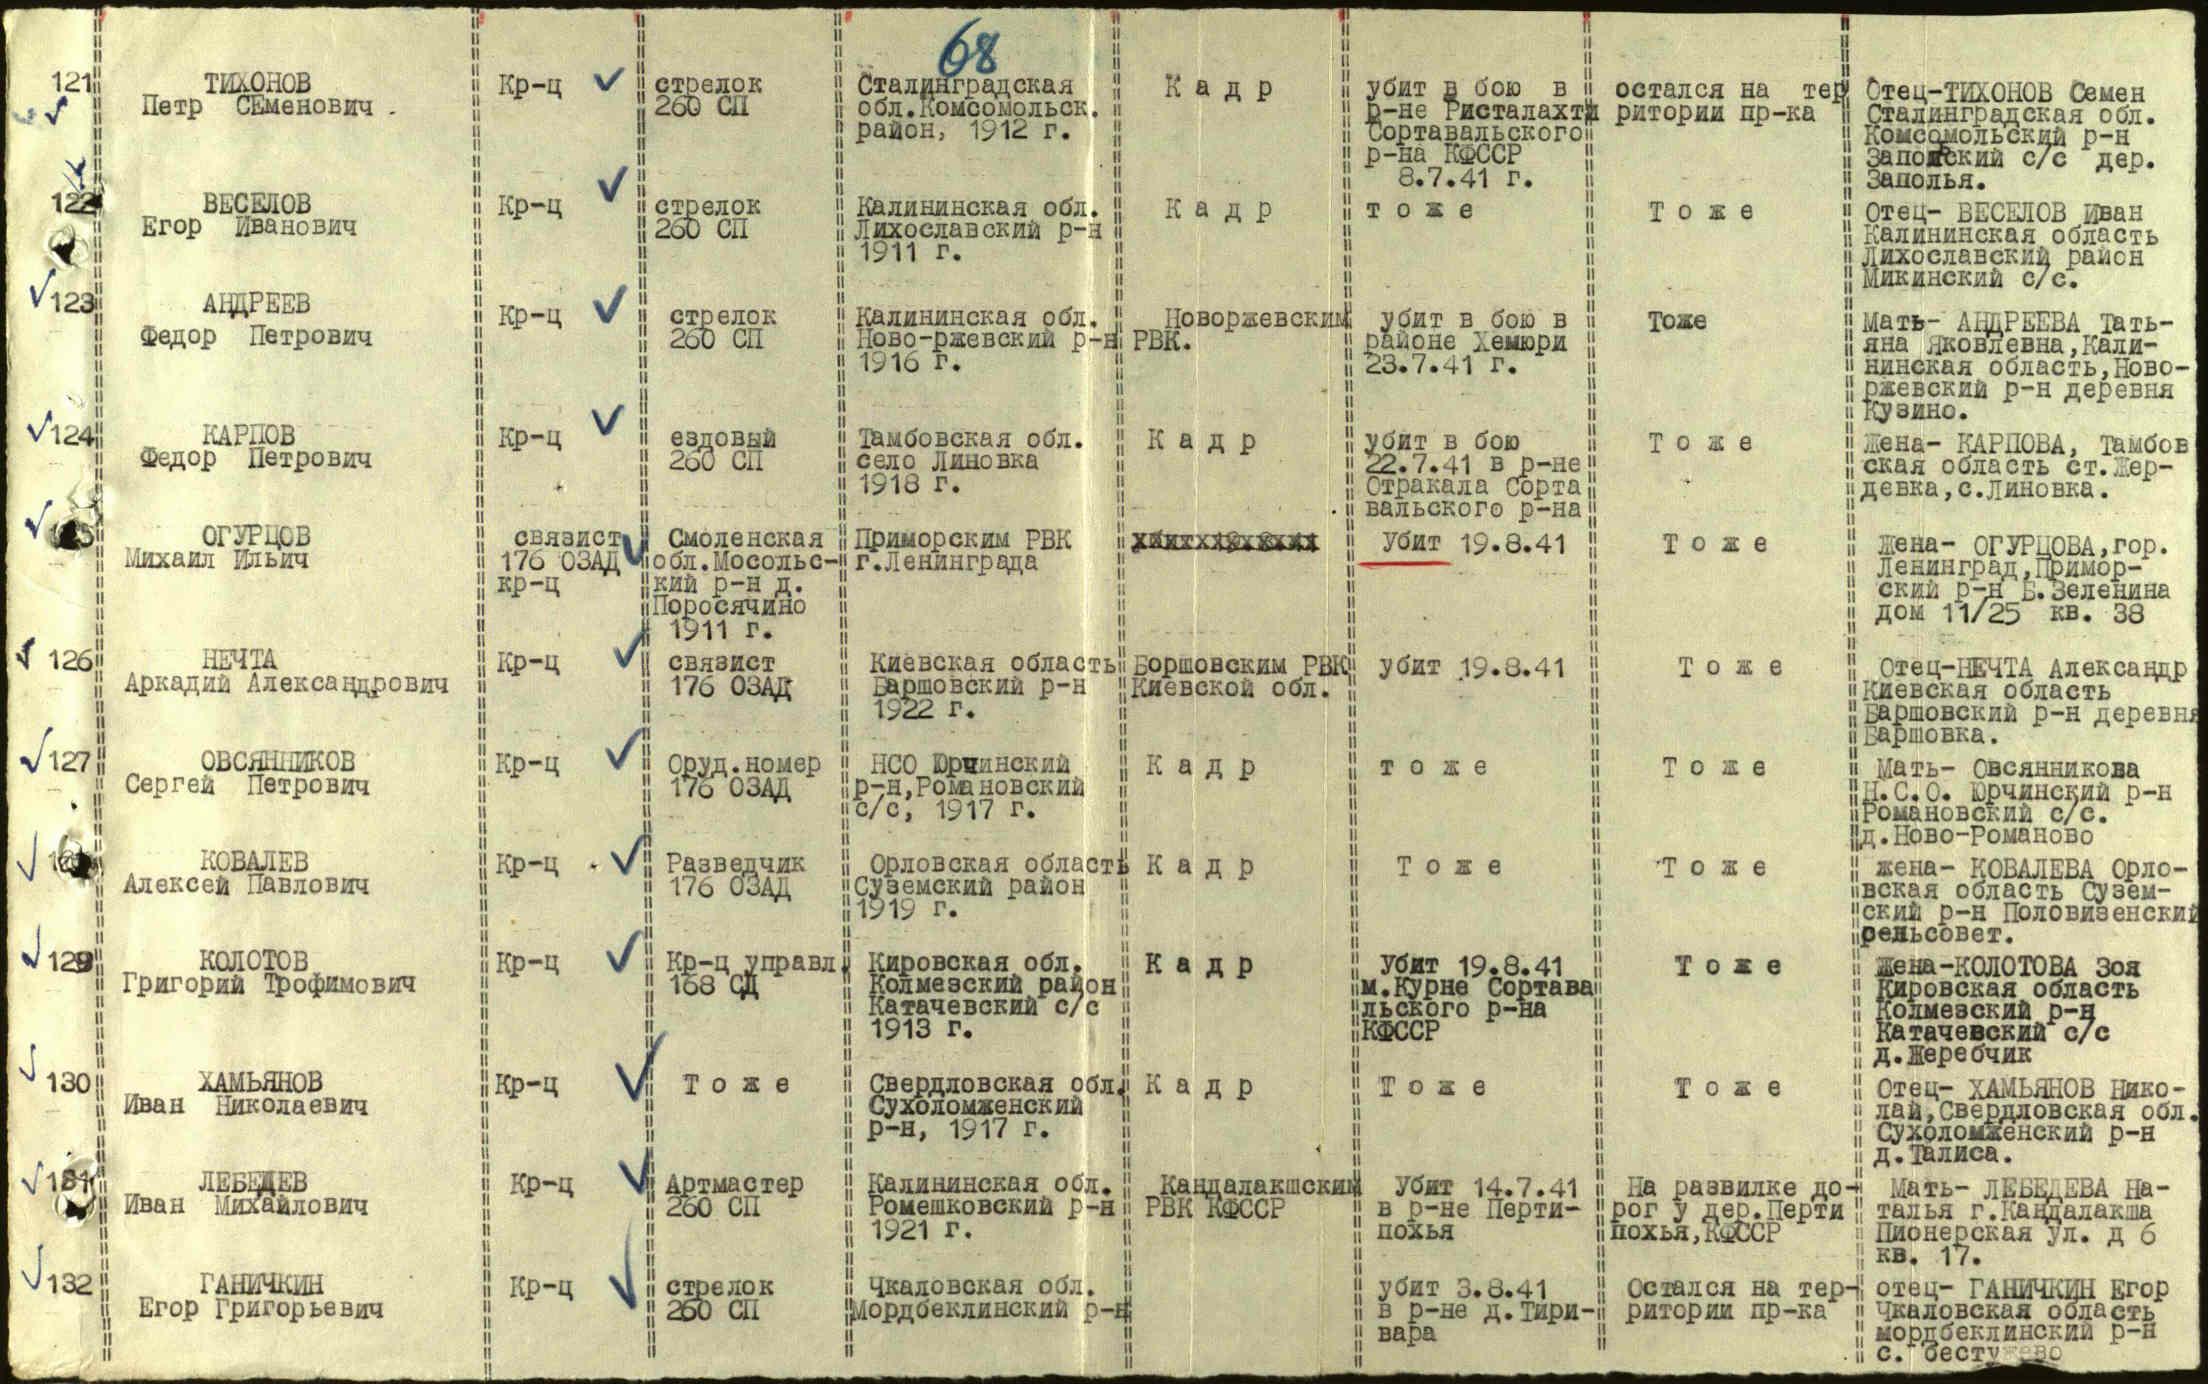 68
121 ТИХОНОВ Кр-ц стрелок Сталинградская К а д р убит в бою в остался на тер Отец-ТИХОНОВ Семен
Петр СЕменович 260 СП обл.Комсомольск. р-не Ристалахти ритории пр-ка Сталинградская обл.
район, 1912 г. Сортавальского Комсомольский р-н
р-на КФССР с/с дер.
8.7.41 г. Заполья.
122 ВЕСЕЛОВ Кр-ц стрелок Калининская обл. К а д р т о ж е Т о ж е Отец- ВЕСЕЛОВ Иван
Егор Иванович 260 СП Лихославский р-н Калининская область
1911 г. Лихославский район
Микинский с/с.
123 АНДРЕЕВ Кр-ц стрелок Калининская обл. Новоржевским убит в бою в Тоже Мать- АНДРЕЕВА Тать-
Федор Петрович 260 СП Ново-ржевский р-н РВК. районе Хемюри яна Яковлевна,Кали-
1916 г. 23.7.41 г. нинская область,Ново-
ржевский р-н деревня
Кузино.
124 КАРПОВ Кр-ц ездовый Тамбовская обл. К а д р убит в бою Т о ж е Жена- КАРПОВА, Тамбов
Федор Петрович 260 СП село Линовка 22.7.41 в р-не ская область ст.Жер-
1918 г. Отракала Сорта девка,с.Линовка.
вальского р-на
ОГУРЦОВ связист Смоленская Приморским РВК Убит 19.8.41 Т о ж е Жена- ОГУРЦОВА,гор.
Михаил Ильич 176 ОЗАД обл.Мосольс- г.Ленинграда Ленинград,Примор-
кр-ц кий р-н д. ский р-н Б.Зеленина
Поросячино дом 11/25 кв. 38
1911 г.
126 НЕЧТА Кр-ц связист Киевская область Боршовским РВК убит 19.8.41 Т о ж е Отец-НЕЧТА Александр
Аркадий Александрович 176 ОЗАД Баршовский р-н Киевской обл. Киевская область
1922 г. Баршовский р-н деревня
Баршовка.
127 ОВСЯННИКОВ Кр-ц Оруд.номер НСО Юрчинский К а д р т о ж е Т о ж е Мать- Овсянникова
Сергей Петрович 176 ОЗАД р-н,Романовский Н.С.О. Юрчинский р-н
с/с, 1917 г. Романовский с/с.
д.Ново-Романово
КОВАЛЕВ Кр-ц Разведчик Орловская область К а д р Т о ж е Т о ж е жена- КОВАЛЕВА Орло-
Алексей Павлович 176 ОЗАД Суземский район вская область Сузем-
1919 г. ский р-н Половизенский
сельсовет.
129 КОЛОТОВ Кр-ц Кр-ц управл. Кировская обл. К а д р Убит 19.8.41 Т о ж е Жена-КОЛОТОВА Зоя
Григорий Трофимович 168 СД Колмезский район м.Курне Сортава Кировская область
Катачевский с/с льского р-на Колмезский р-н
1913 г. КФССР Катачевский с/с
д.Жеребчик
130 ХАМЬЯНОВ Кр-ц Т о ж е Свердловская обл. К а д р Т о ж е Т о ж е Отец- ХАМЬЯНОВ Нико-
Иван Николаевич Сухоломженский лай,Свердловская обл.
р-н, 1917 г. Сухоломженский р-н
д.Талиса.
131 ЛЕБЕДЕВ Кр-ц Артмастер Калининская обл. Кандалакшским Убит 14.7.41 На развилке до- Мать- ЛЕБЕДЕВА На-
Иван Михайлович 260 СП Ромешковский р-н РВК КФССР в р-не Перти- рог у дер.Перти талья г.Кандалакша
1921 г. похья похья,КФССР Пионерская ул. д 6
кв. 17.
132 ГАНИЧКИН Кр-ц стрелок Чкаловская обл. убит 3.8.41 Остался на тер- отец- ГАНИЧКИН Егор
Егор Григорьевич 260 СП Мордбеклинский р-н в р-не д.Тири- ритории пр-ка Чкаловская область
вара мордбеклинский р-н
с. бестужево